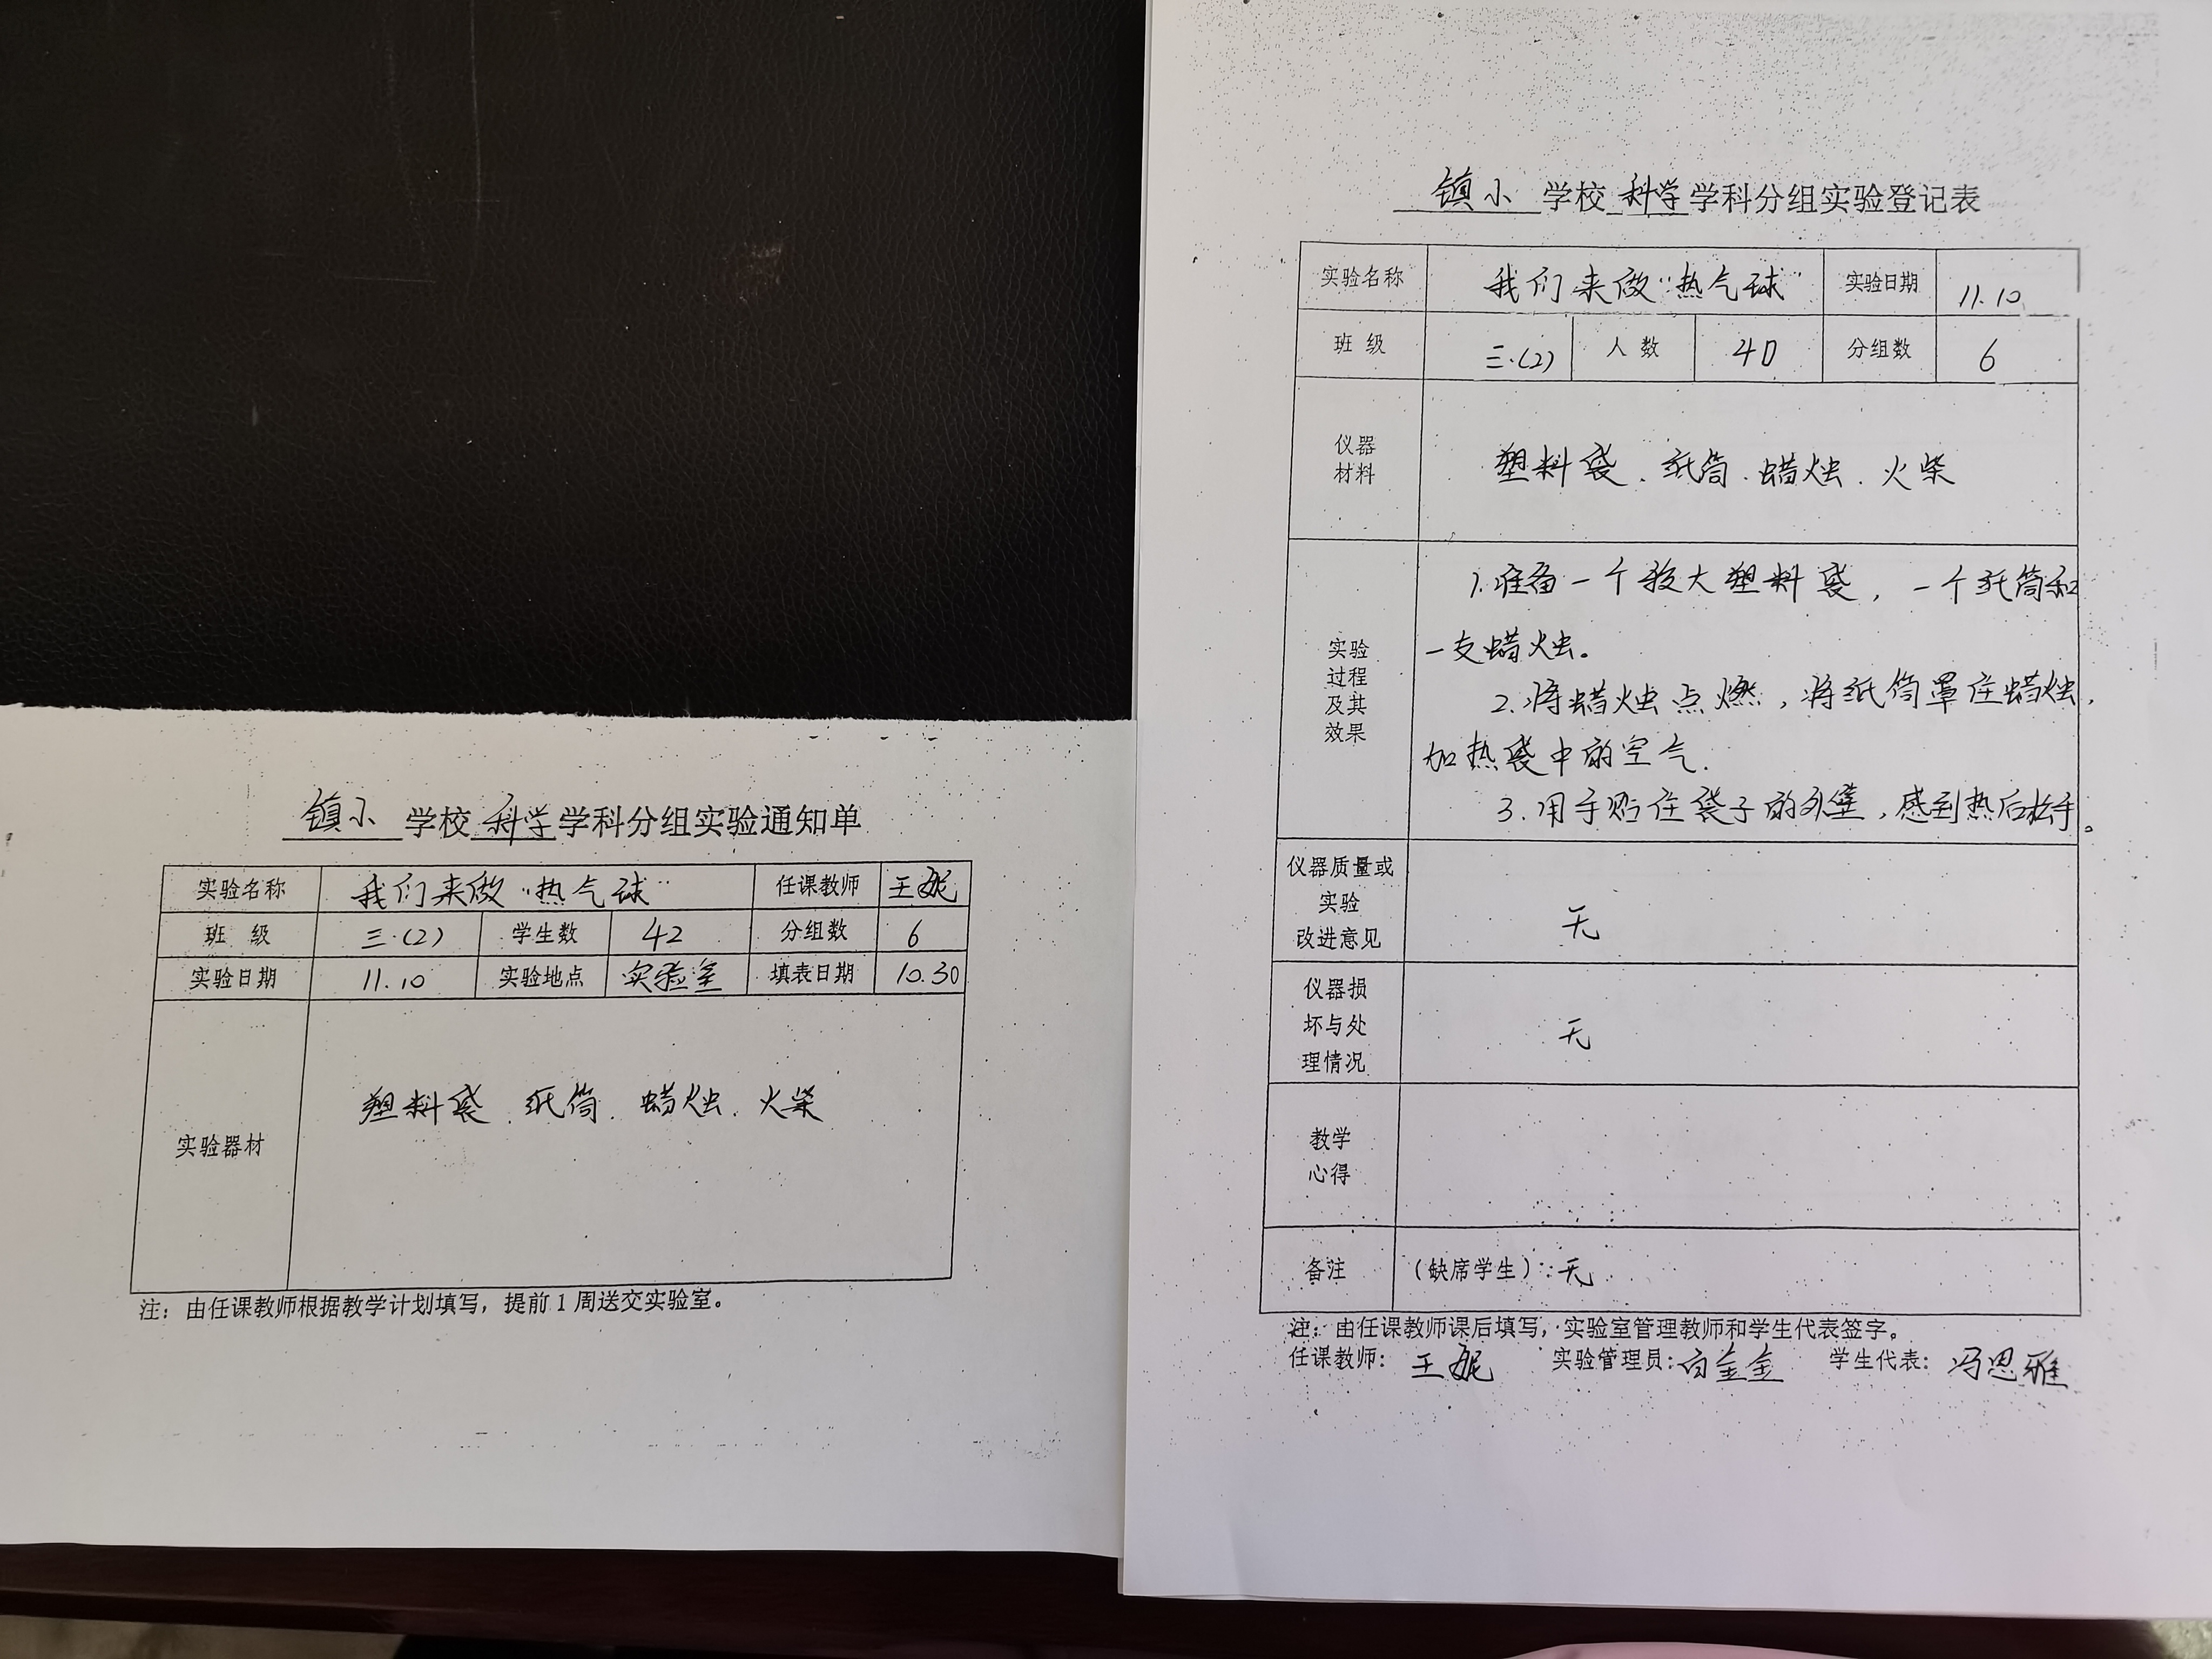 镇小 学校 科学 学科分组实验通知单
实验名称 我们来做“热气球” 任课教师 王妮
班 级 三.(2) 学生数 42 分组数 6
实验日期 11.10 实验地点 实验室 填表日期 10.30
实验器材 塑料袋、纸筒、蜡烛、火柴
注：由任课教师根据教学计划填写，提前1周送交实验室。
镇小 学校 科学 学科分组实验登记表
实验名称 我们来做“热气球” 实验日期 11.10
班 级 三.(2) 人 数 40 分组数 6
仪器
材料
塑料袋、纸筒、蜡烛、火柴
实验
过程
及其
效果
1.准备一个较大塑料袋，一个纸筒和
一支蜡烛。
2.将蜡烛点燃，将纸筒罩住蜡烛，
加热袋中的空气.
3.用手贴住袋子的外壁，感到热后松手。
仪器质量或
实验
改进意见
无
仪器损
坏与处
理情况
无
教学
心得
备注 (缺席学生)：无
注：由任课教师课后填写，实验室管理教师和学生代表签字。
任课教师：王妮 实验管理员：白金金 学生代表：冯思雅